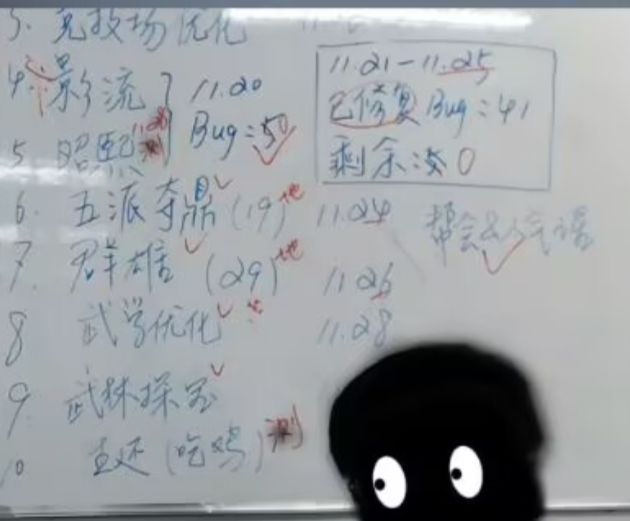 3. 竞技场优化
4. 影流 } 11.20
5 昭熙 11.28 测 Bug:50 ✓
6. 五派夺鼎 ✓ (19) 地 11.24
7. 群雄 ✓ (29) 地 11.26
8 武学优化 ✓ 11.28
9. 武林探宝 ✓
10 (吃鸡) 测
11.21-11.25
已修复Bug:41
剩余:0
帮会